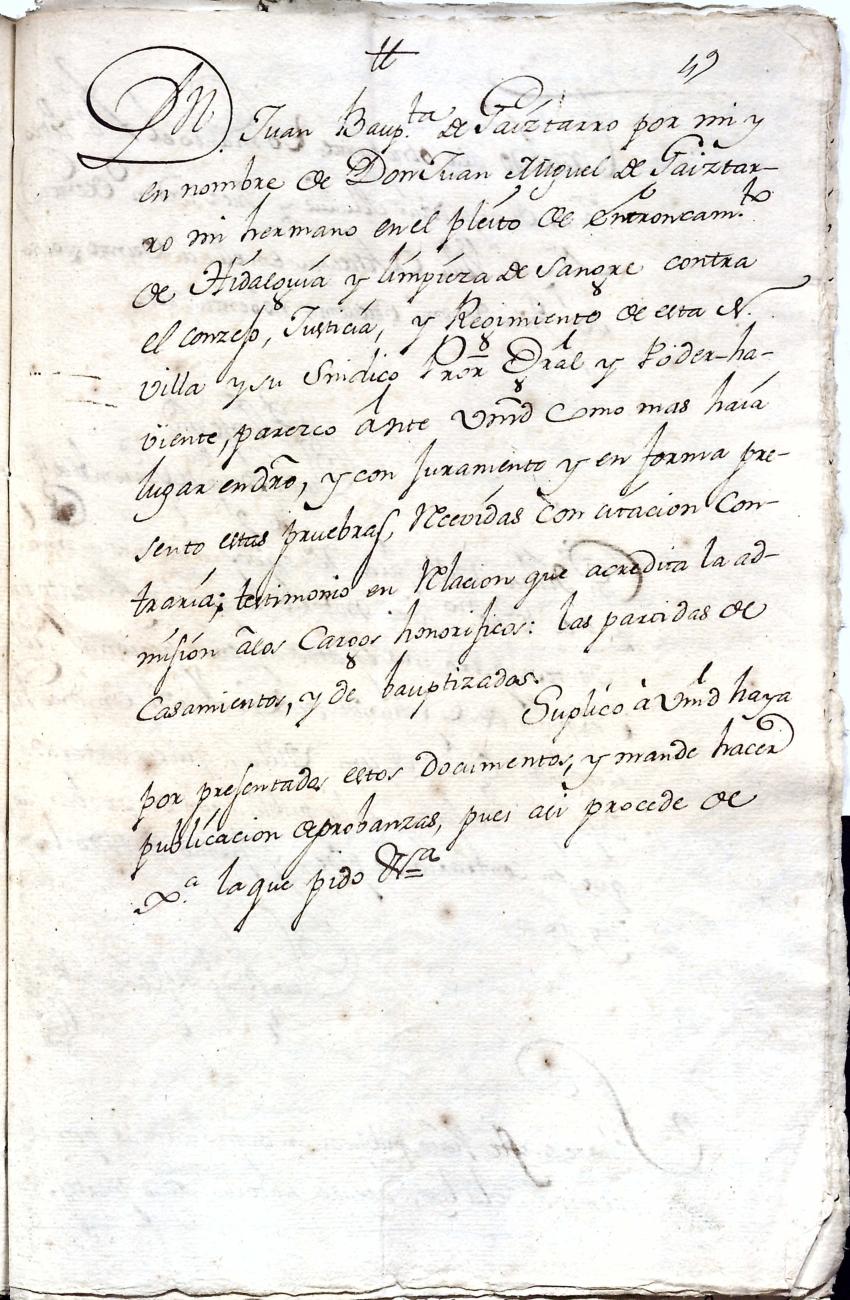 49
Dn. Juan Baup.ta de Gaiztarro por mi y
en nombre de Don Juan Miguel de Gaiztar-
ro mi hermano en el pleito de entroncam.to
de Hidalguia y limpieza de sangre contra
el conzejo, Justicia, y Regimiento de esta N.
villa y su Sindico Pror Gral y Poder-ha-
viente, parezco ante Vmd como mas haia
lugar en dro, y con juramento y en forma pre-
sento estas pruebas, Recevidas con citacion Con-
traria; testimonio en Relacion que acredita la ad-
mision a los Cargos honorificos: las partidas de
Casamientos, y de bauptizados.
Suplico à Vmd haya
por presentados estos documentos, y mande hacer
publicacion de probanzas, pues asi procede de
Jx.a la que pido &a